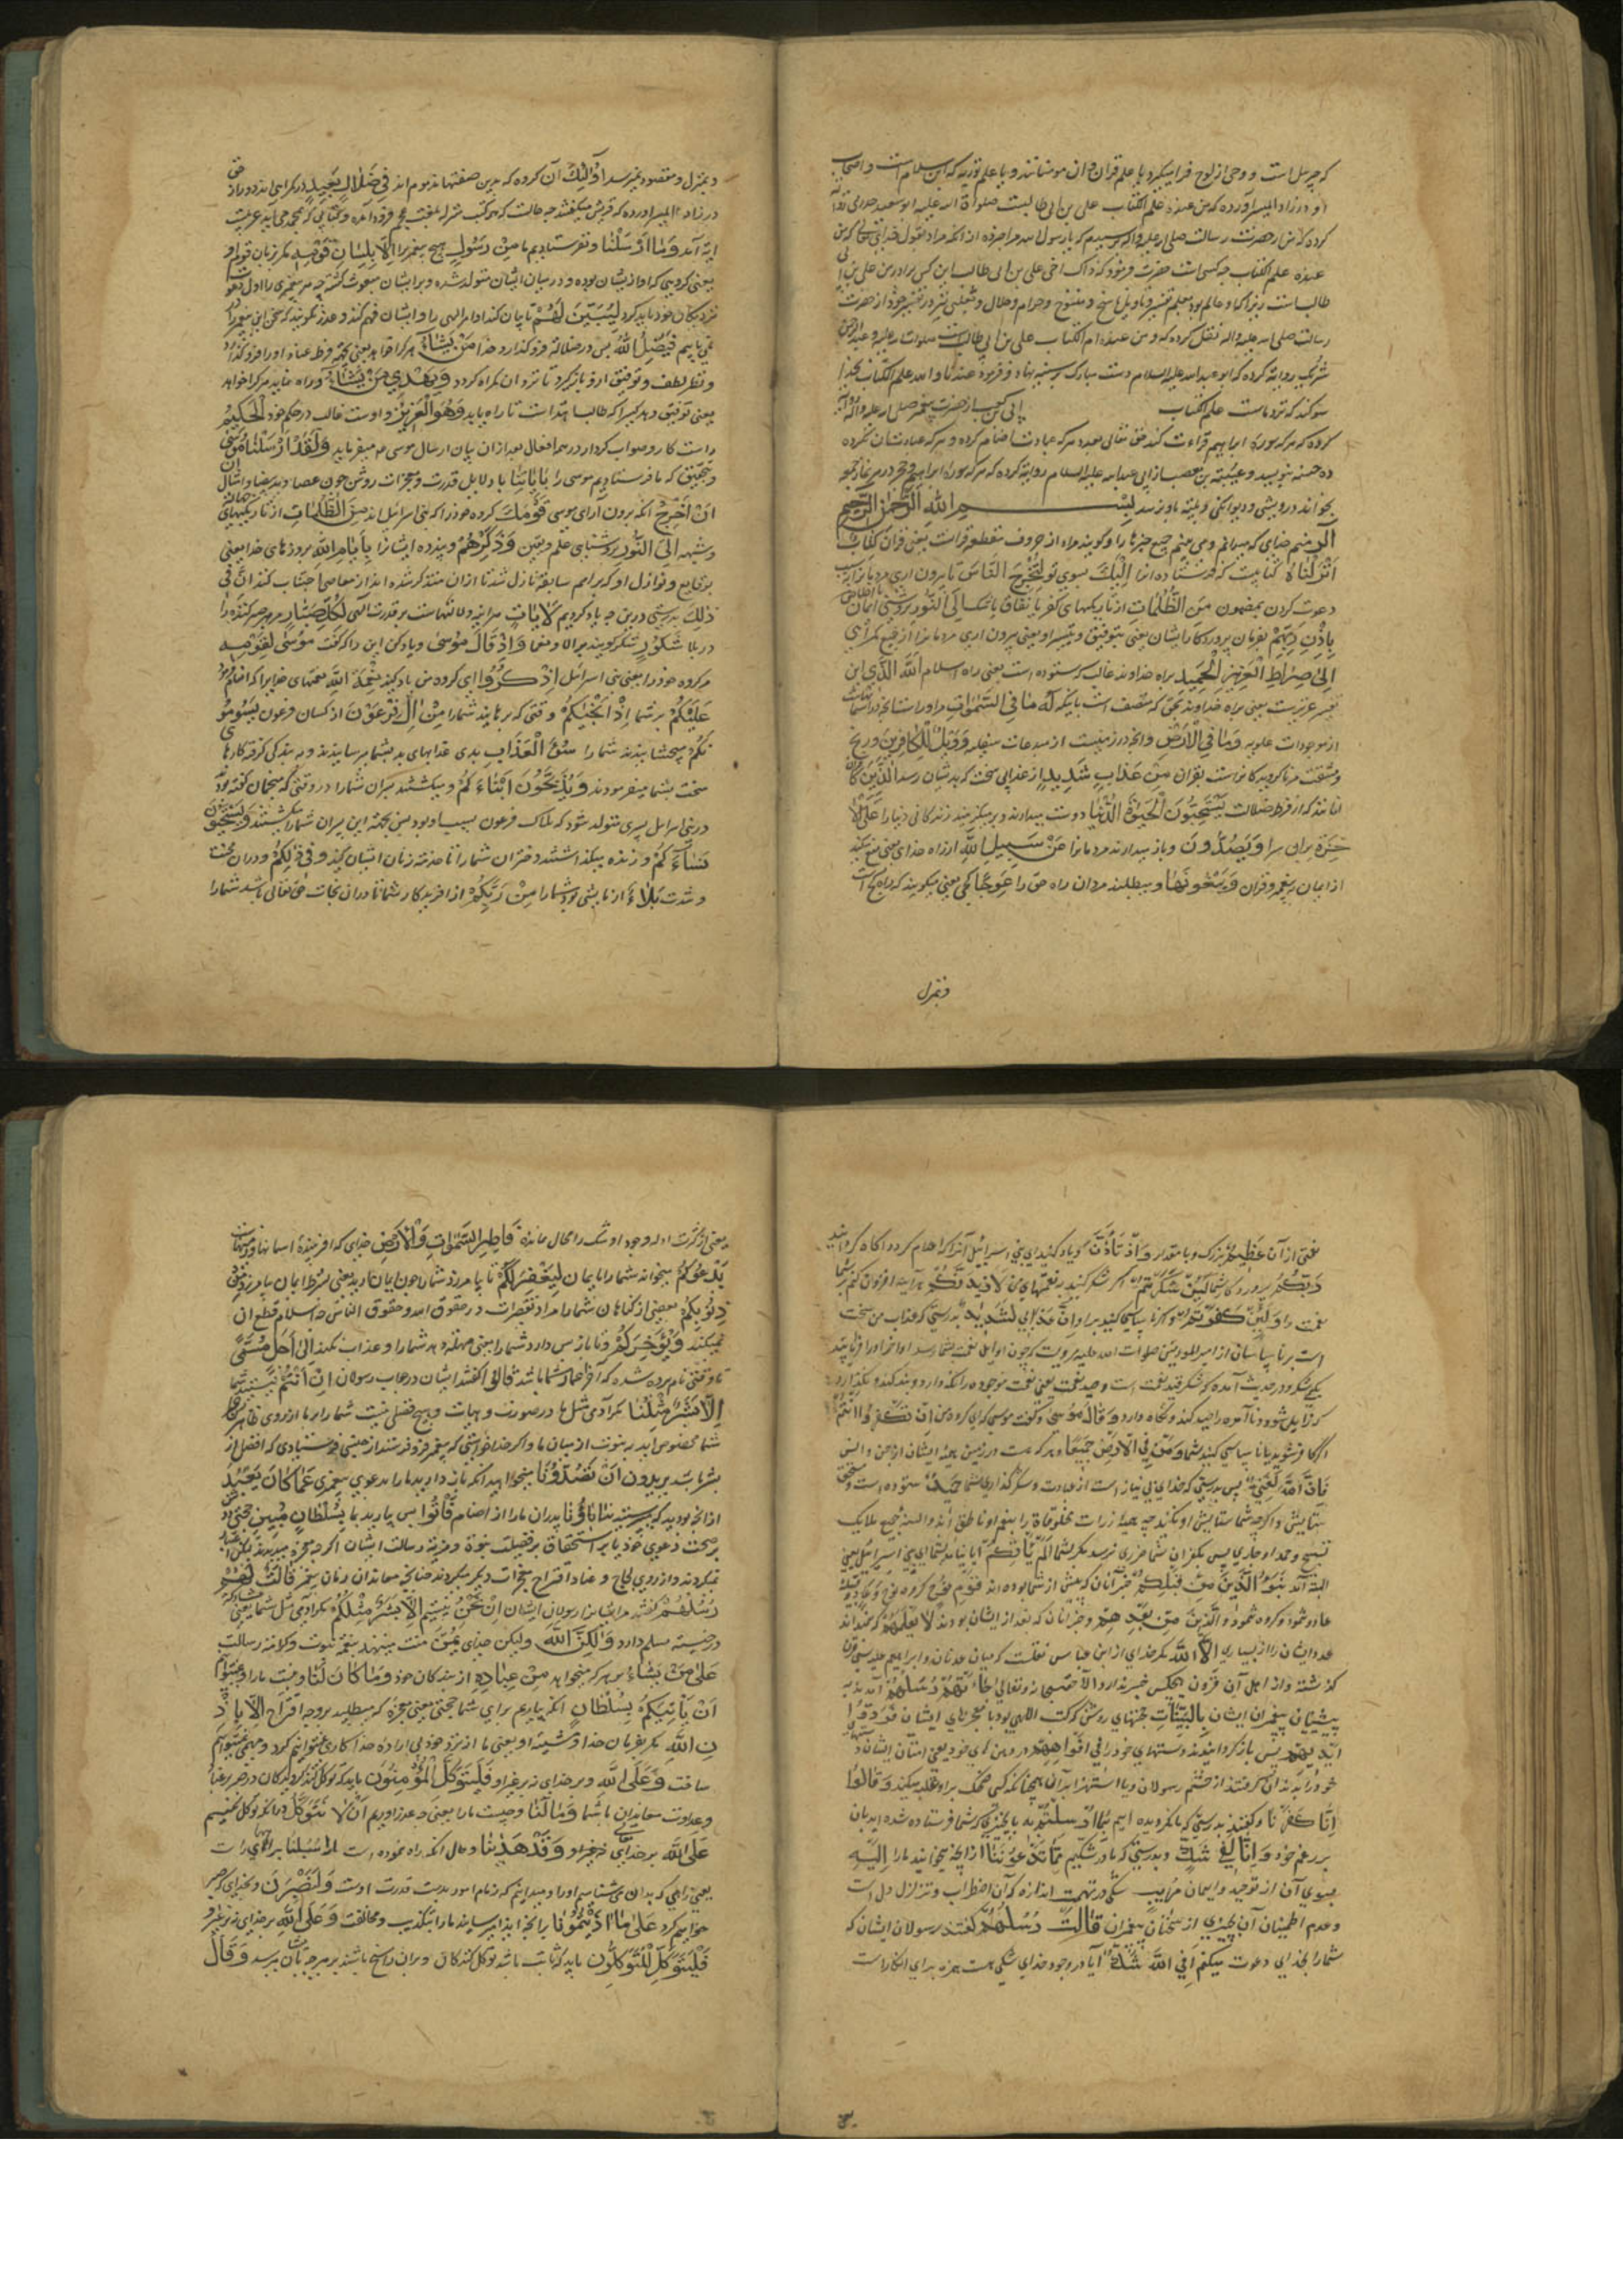 که جبرئیل است و وحی از لوح فرا میگیرد یا علم قران و ان مومنانند و یا علم توریة که ابن سلام است و اصحاب
او و در زاد المسیر آورده که من عنده علم الکتاب علی بن ابی طالب است صلوات الله علیه ابو سعید خدری روایة
کرده که من از حضرت رسالت صلی الله علیه واله پرسیدم که یا رسول الله مرا خبر ده از انکه مراد بقول خدای تعالی که من
عنده علم الکتاب چه کس است حضرت فرمود که ذاک اخی علی بن ابی طالب این کس برادر من علی بن ابی
طالب است
رسالت صلی الله علیه واله نقل کرده که و من عنده ام الکتاب علی بن ابی طالب است صلوات الله علیه و عبد الرحمن
روایة کرده که ابو عبد الله علیه السلام دست مبارک بر سینه نهاد و فرمود عندنا والله علم الکتاب بخدا
سوکند که نزد ماست علم الکتاب ابی بن کعب از حضرت پیغمبر صلی الله علیه واله روایة
کرده که هر که سوره ابراهیم قراءت کند حق تعالی بعدد هر که عبادت اصنام کرده و هر که عبادتشان نکرده
ده حسنه بنویسد و عیینه بن مصعب از ابی عبد الله علیه السلام روایة کرده که هر که سوره ابراهیم و حجر در هر نماز جمعه
بخواند درویشی و دیوانکی و بلیه باو نرسد بسم الله الرحمن الرحیم
الر منم خدای که میدانم و می بینم جمیع چیزها را و کویند مراد از حروف مقطعه قرانست یعنی قران کتاب
انزلناه کتابیست که فرستاده ایم انرا الیک بسوی تو لتخرج الناس تا بیرون اری مردمانرا بسبب
دعوت کردن بمضمون من الظلمات از تاریکیهای کفر یا نفاق یا شک الی النور بروشنی ایمان
باذن ربهم بفرمان پروردکار ایشان یعنی بتوفیق و تیسیر او یعنی بیرون اری مردمانرا از جمیع کمراهی
الی صراط العزیز الحمید براه خداوند غالب که ستوده است یعنی راه اسلام الله الذی این
تفسیر عزیز است یعنی براه خداوند بحق که متصف است بانکه له ما فی السموات مر اوراست انچه در اسمانهاست
از موجودات علویه وما فی الارض و انچه در زمینست از مبدعات سفلیه وویل للکافرین و رنج
و مشقت مر ناکرویدکانراست بقران من عذاب شدید از عذابی سخت که بدیشان رسد الذین
انانند که از فرط ضلالت یستحبون الحیوة الدنیا دوست میدارند و بر میکزینند زندکانی دنیا را علی الا
خرة بران سرا ویصدون و باز میدارند مردمانرا عن سبیل الله از راه خدای یعنی منع میکنند
از ایمان به پیغمبر و قران ویبغونها و میطلبند مردان راه حق را عوجا کجی یعنی میکویند که راه کج است
و بمنزل
و بمنزل و مقصود نمیرسد اولئک آن کروه که بدین صفتها مذموم اند فی ضلال بعید در کمراهی اند دور از حق
در زاد المسیر آورده که قریش میکفتند چه حالت که هر کتب منزله بلغت عجم فرود آمده و کتابی که بمحمد می آید عربیست
ایة آمد وما ارسلنا و نفرستادیم ما من رسول هیچ پیغمبر را الا بلسان قومه مکر بزبان قوم او
یعنی کروهی که او از ایشان بوده و در میان ایشان متولد شده و بر ایشان مبعوث کشته چه هر پیغمبری را اول دعوت
نزدیکان خود باید کرد لیبین لهم تا بیان کند اوامر الهی را و ایشان فهم کنند و عذر نکویند که سخن این پیغمبر را
نمی یابیم فیضل الله پس در ضلالة فرو کذارد خدا من یشاء هر کرا خواهد یعنی بجهة فرط عناد او را فرو کذارد
و نظر لطف و توفیق از و باز کیرد تا نزد ان کمراه کردد ویهدی من یشاء و راه نماید هر کرا خواهد
یعنی توفیق دهد کسیرا که طالب هدایت است تا راه یابد وهو العزیز و اوست غالب در حکم خود الحکیم
راست کار و صواب کردار در همه افعال بعد از ان بیان ارسال موسی ع میفرماید ولقد ارسلنا موسی
و بتحقیق که ما فرستادیم موسی را بایاتنا با دلایل قدرت و معجزات روشن چون عصا و ید بیضا و امثال ان
ان اخرج انکه بیرون ار ای موسی قومک کروه خود را که بنی اسرائیل اند من الظلمات از تاریکیهای
و شبهه الی النور بروشنایی علم و یقین وذکرهم و پند ده ایشانرا بایام الله بروزهای خدا یعنی
بوقایع و نوازل او که بر امم سابقه نازل شد تا از ان متذکر شده از معاصی اجتناب کنند ان فی
ذلک بدرستی درین چه یاد کردیم لایات هر اینه دلالتهاست بر قدرت الهی لکل صبار مر هر صبر کننده را
در بلا شکور شکر کوینده بر الا و نعما واذ قال موسی و یاد کن این را که کفت موسی لقومه
مر کروه خود را یعنی بنی اسرائیل اذکروا ای کروه من یاد کنید نعمة الله نعمتهای خدایرا که انعام نمود
علیکم بر شما اذ انجیکم وقتی که برهانید شما را من ال فرعون از کسان فرعون یسومو
نکم میچشانیدند شما را سوء العذاب بدی عذابهای بد بشما میرسانیدند و به بندکی کرفته کارهای
سخت بشما میفرمودند ویذبحون ابناءکم و میکشتند پسران شما را در وقتی که منجمان کفته بودند
در بنی اسرائیل پسری متولد شود که هلاک فرعون بسبب او بود پس بجهة این پسران شما را میکشتند ویستحیون
نساءکم و زنده میکذاشتند دختران شما را تا خدمة زنان ایشان کنند وفی ذلکم و در ان محنت
و شدت بلاء از نمایشی بود شما را من ربکم از افریدکار شما تا در ان نجات حق تعالی باشد شما را
نعمتی از آن عظیم بزرک و با مقدار واذ تاذن و یاد کنید ای بنی اسرائیل آنرا که اعلام کرد و اکاه کردانید
ربکم پروردکار شما لئن شکرتم اکر شکر کنید بر نعمتهای من لازیدنکم هر آینه افزون کنم بر شما
نعمت را ولئن کفرتم و اکر ناسپاسی کنید بر او ان عذابی لشدید بدرستی که عذاب من سخت
است بر ناسپاسان از امیر المومنین صلوات الله علیه مرویست که چون اوایل نعمت بشما رسد اواخر او را
کم شکری و در حدیث آمده که شکر قید نعمت است و صید نعمت یعنی نعمت موجوده را نکه دارد و بند کند و نکذارد
که زایل شود و نا آمده را صید کند و نکاه دارد وقال موسی و کفت موسی که ای کروه من ان تکفروا انتم
اکر کافر شوید یا ناسپاسی کنید شما ومن فی الارض جمیعا و هر که هست در زمین همه ایشان از جن و انس
فان الله لغنی پس بدرستی که خدای بی نیاز است از عبادت و شکر کذاری شما حمید ستوده است و مستحق
ستایش و اکر چه شما ستایش او نکنید چه همه ذرات مخلوقات او را بنعم او ناطق اند و السنه جمیع ملایک
تسبیح و حمد او جاری پس بکفران شما ضرری نرسد مکر بشما الم یاتکم ایا نیامد بشما ای بنی اسرائیل یعنی
البته آمد نبو الذین من قبلکم خبر آنان که پیش از شما بوده اند قوم نوح کروه نوح وعاد و قبیله
عاد وثمود و کروه ثمود والذین من بعدهم و خبر انان که بعد از ایشان بودند لا یعلمهم که نمیداند
عدد ایشان را از بسیاری الا الله مکر خدای از ابن عباس نقلست که میان عدنان و ابراهیم علیه السلام سی قرن
کذشته و از اهل آن قرون هیچکس خبر ندارد الا حق سبحانه و تعالی جاءتهم رسلهم آمدند به
پیشینیان پیغمبران ایشان بالبینات بحجتهای روشن که کتب الهی بود یا معجزهای ایشان فردوا
ایدیهم پس باز کردانیدند دستهای خود را فی افواههم در دهن های خود یعنی امتان ایشان دستهای
خود را بدندان کرفتند از خشم رسولان و یا استهزا بدان همچنانکه کسی ضحک بر او غلبه میکند وقالوا
انا کفرنا و کفتند بدرستی که ما نکرویده ایم بما ارسلتم به بانچیزی که شما فرستاده شده اید بان
بر زعم خود وانا لفی شک و بدرستی که ما در شکیم مما تدعوننا از انچه میخوانید ما را الیه
بسوی آن از توحید و ایمان مریب شکی در تهمت اندازه که آن اضطراب و تزلزل دل است
و عدم اطمینان آن بچیزی از سخنان پیغمبران قالت رسلهم کفتند رسولان ایشان که
شما را بخدای دعوت میکنم افی الله شک آیا در وجود خدای شکی هست همزه برای انکار است
یعنی از کثرت ادله وجود او شک را مجال مانده فاطر السموات والارض خدایی که افریننده اسمانها و زمینهاست
یدعوکم میخواند شما را بایمان لیغفر لکم تا بیامرزد شما را چون ایمان آورید یعنی بشرط ایمان بیامرزد من
ذنوبکم بعضی از کناهان شما را مراد تقصیرات در حقوق الله و حقوق الناس چه اسلام قطع ان
نمیکند ویؤخرکم و تا باز پس دارد شما را یعنی مهلة دهد شما را و عذاب نکند الی اجل مسمی
تا وقتی نام برده شده که آخر اعمار شما باشد قالوا کفتند ایشان در جواب رسولان ان انتم نیستید شما
الا بشر مثلنا مکر آدمی مثل ما در صورت و هیات و هیچ فضلی نیست شما را بر ما از روی ظاهر چرا
شما مخصوص اید به نبوت از میان ما و اکر خدا خواستی که پیغمبر فرو فرستد از جنسی فرستادی که افضل از
بشر باشد تریدون ان تصدونا میخواهید انکه باز دارید ما را بدعوی پیغمبری عما کان یعبد
از انچه بودند که میپرستیدند اباؤنا پدران ما را از اصنام فاتونا پس بیارید بما بسلطان مبین حجتی روشن
بر صحت دعوی خود یا بر استحقاق بر فضیلت نبوة و مزیة رسالت ایشان اکر چه معجزه میدیدند لیکن
نمیکردند و از روی لجاج و عناد اقتراح معجزات دیکر میکردند چنانچه معاندان زمان پیغمبر قالت لهم
رسلهم کفتند مر ایشانرا رسولان ایشان ان نحن نیستیم الا بشر مثلکم مکر آدمی مثل شما یعنی
در جنسیه مسلم دارد ولکن الله ولیکن خدای یمن منت مینهد بنعمة نبوت و کرامة رسالت
علی من یشاء بر هر که میخواهد من عباده از بندکان خود وما کان لنا و نیست ما را و نمیتوانیم
ان ناتیکم بسلطان انکه بیاریم برای شما حجتی یعنی معجزه که میطلبید بر وجه اقتراح الا باذ
ن الله مکر بفرمان خدا و مشیة او یعنی ما از نزد خود بی اراده خدا کاری نتوانیم کرد و مهمی نتوانیم
ساخت وعلی الله و بر خدای نه بر غیر او فلیتوکل المؤمنون باید که توکل کنند کرویدکان در صبر بر عناد
و عداوت معاندان با شما وما لنا و چیست ما را یعنی چه عذر داریم ان لا نتوکل در انکه توکل نکنیم
علی الله بر خدای نه بر غیر او وقد هدینا و حال انکه راه نموده است ما را سبلنا براههای راست
یعنی راهی که بدان می شناسیم او را و میدانیم که زمام امور بدست قدرت اوست ولنصبرن و بخدای که صبر
خواهیم کرد علی ما اذیتمونا بر انچه ایذا میرسانید ما را بتکذیب و مخالفت وعلی الله بر خدای نه بر غیر او
فلیتوکل المتوکلون باید که ثابت باشند توکل کنندکان و بران راسخ باشند بر هر چه بایشان برسد وقال